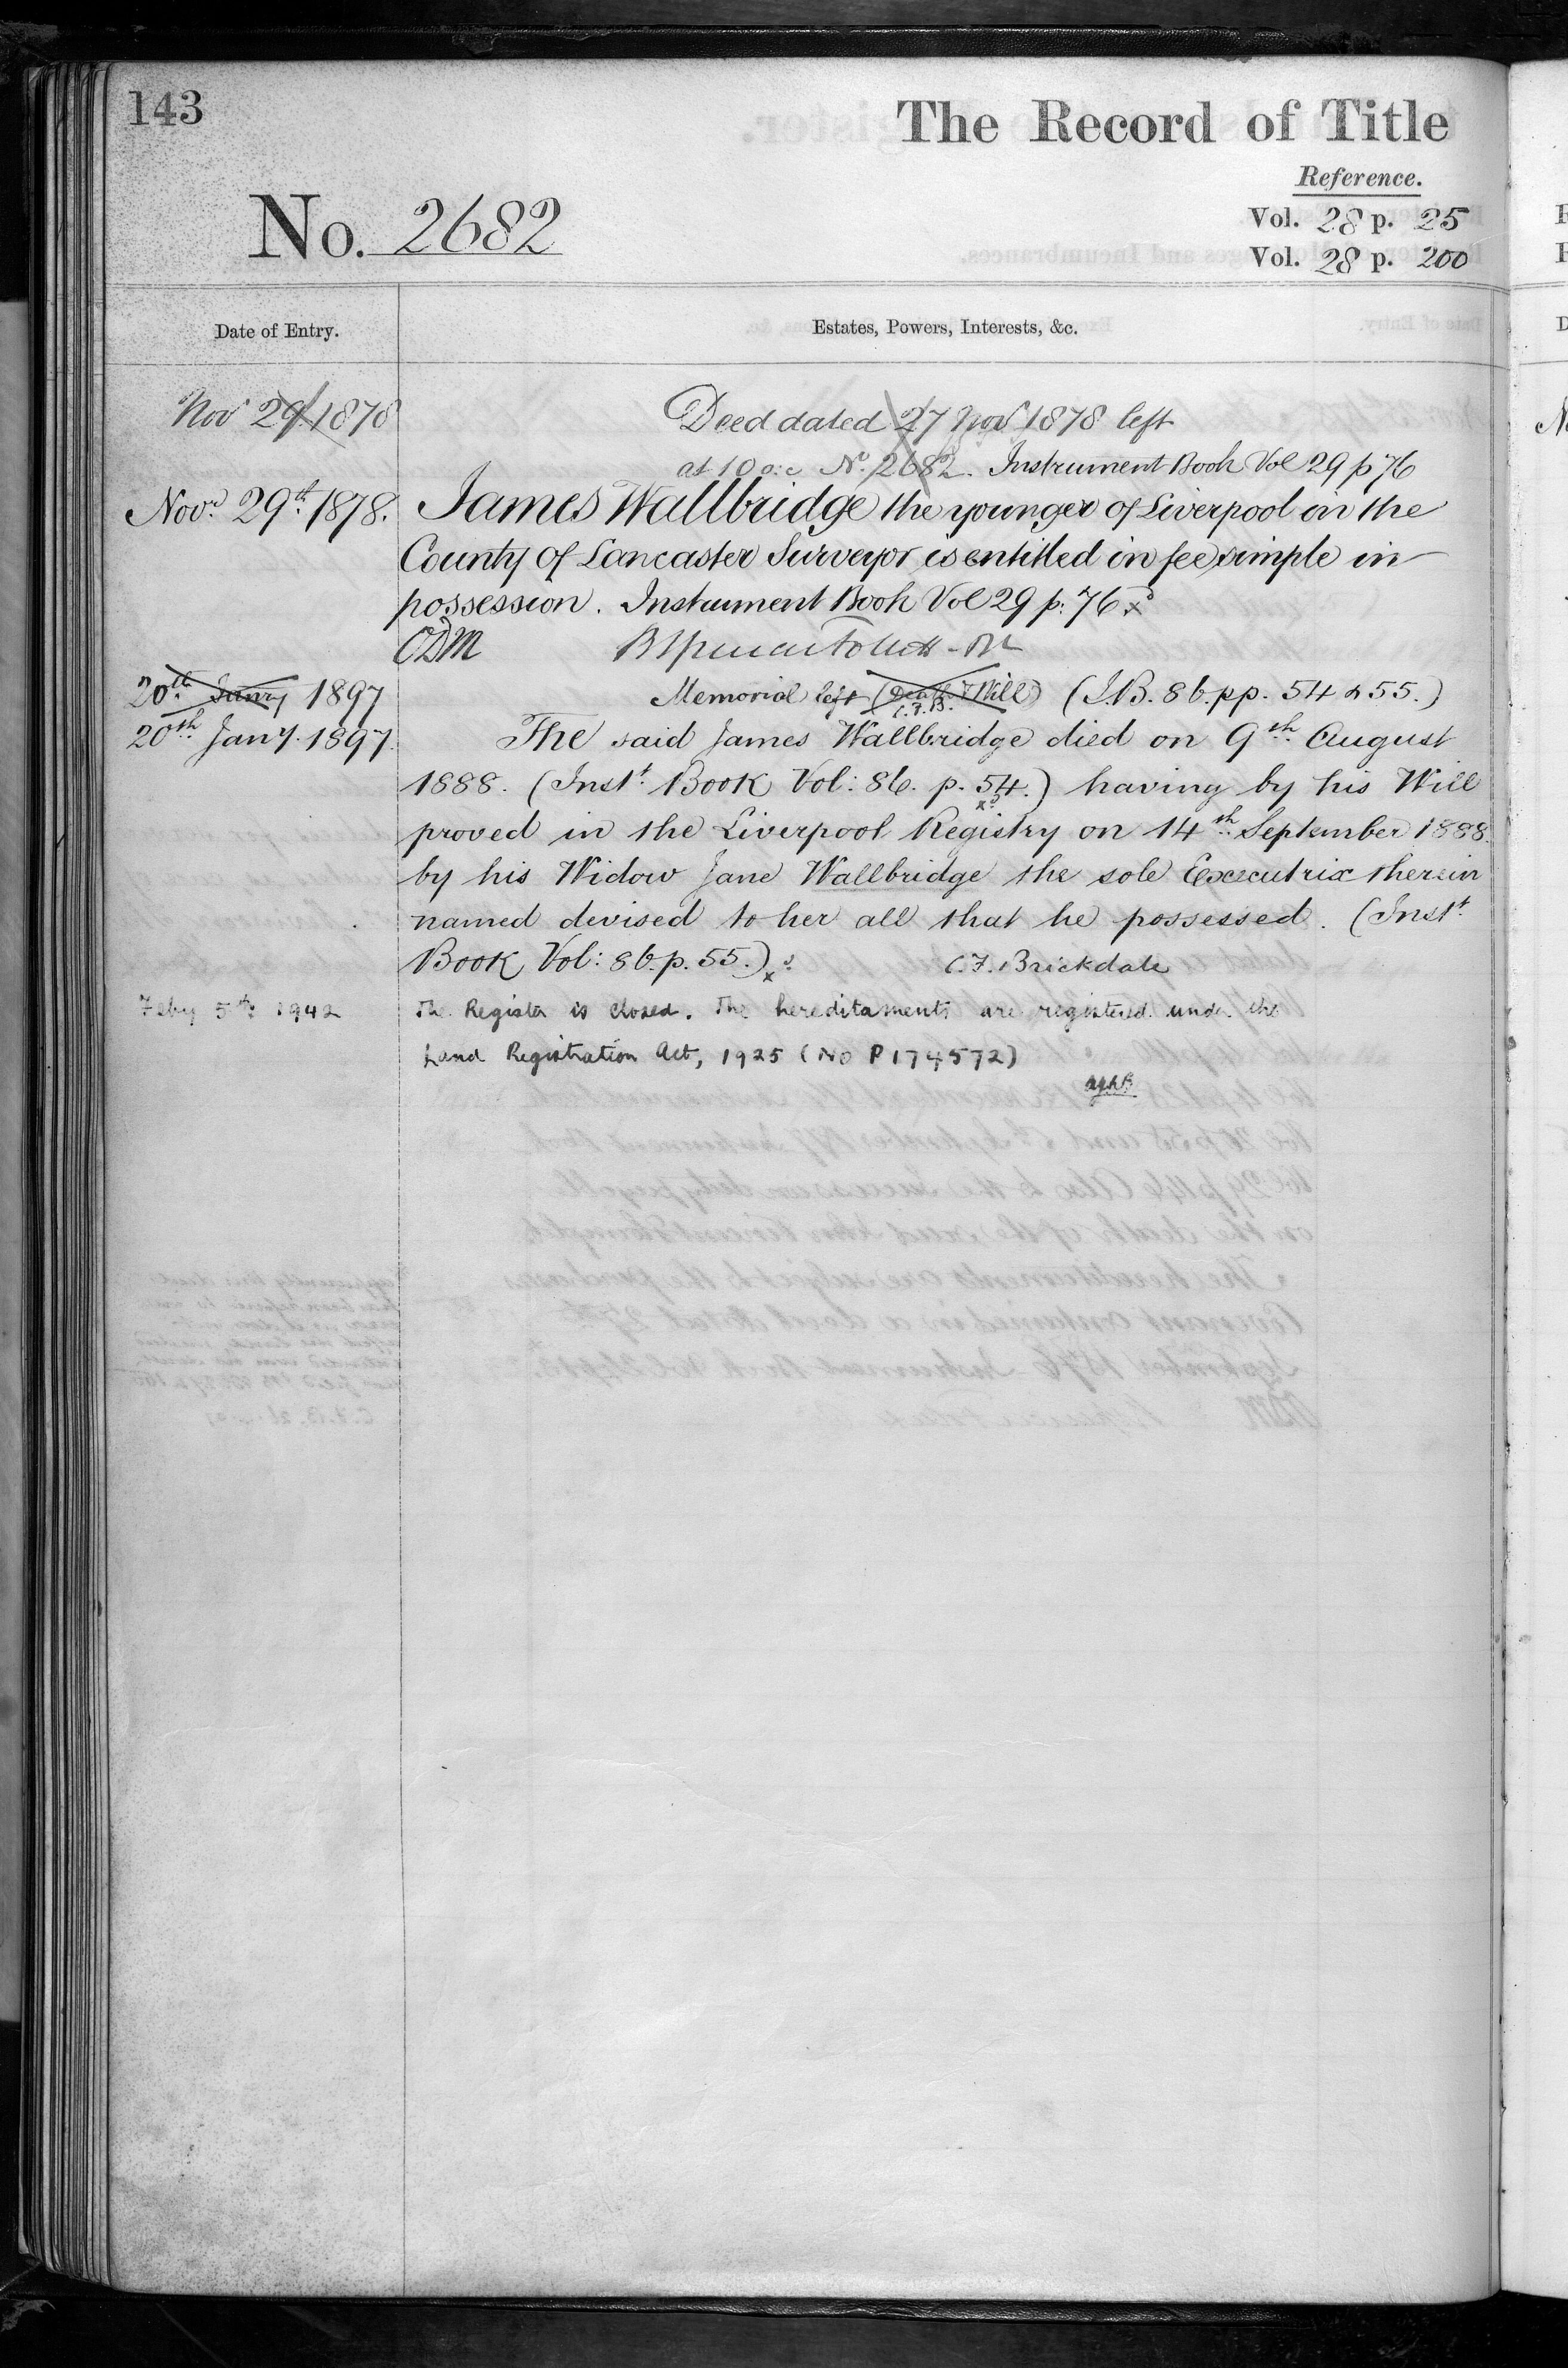 143
The Record of Title
Reference.
No. 2682
Vol. 28 p. 25
Vol. 28 p. 200
Date of Entry.
Estates, Powers, Interests, &c.
Nov 29 1878
Deed dated 27 Nov 1878 left
at 10 o:c No. 2682. Instrument Book Vol 29 p 76
Nov.r 29.th 1878.
James Wallbridge the younger of Liverpool in the
County of Lancaster Surveyor is entitled in fee simple in
possession. Instrument Book Vol 29 p: 76 x
CDM
20th. Janry 1897
Memorial left (Death & Will) (I.B. 86. pp. 54 & 55.)
C.F.B.
20th Jany. 1897.
The said James Wallbridge died on 9th. August
1888. (Inst.t Book Vol: 86. p. 54.) having by his Will
proved in the Liverpool Registry on 14th. September 1888.
by his Widow Jane Wallbridge the sole Excecutrix therein
named devised to her all that he possessed. (Inst.t
Book Vol: 86. p. 55.) x
C.F. Brickdale
Feby 5th 1942
The Register is closed. The hereditaments are registered under the
Land Registration Act, 1925 (No P174572)